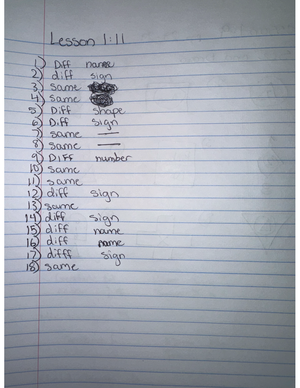 Lesson 1:11
1) Diff name
2) diff sign
3) Same
4) Same
5) Diff shape
6) Diff sign
7) same —
8) same —
9) DIFF number
10) same
11) same
12) diff sign
13) same
14) diff sign
15) diff name
16) diff name
17) difff sign
18) same